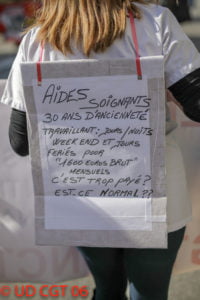 AÏDES
SOIGNANTS
30 ANS D'ANCIENNETÉ
TRAVAILLANT: JOURS/NUITS
WEEK END ET JOURS
FERIÉS POUR
"1600 EUROS BRUT"
MENSUELS
C'EST TROP PAYÉ?
EST. CE NORMAL??
© UD CGT 06